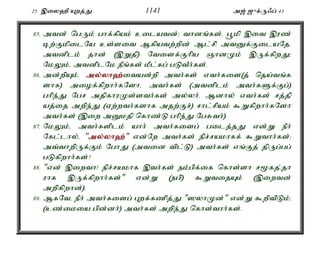 25 இலைஹி யுறத்து 1141 அஜ் ஜுக்ருஃப் 43
85. அவன் பெரும் பாக்கியம் உடையவன்; வானங்கள், பூமி இவை இரண்
டிற்குமிடையே உள்ளவை ஆகியவற்றின் ஆட்சி அவனுக்குடையதே.
அவனிடம் தான் (இறுதி) வேளைக்குரிய ஞானமும் இருக்கிறது;
மேலும், அவனிடமே நீங்கள் மீட்கப் படுவீர்கள்.
86. அன்றியும், அல்லாஹ்வையன்றி அவர்கள் எவர்களை(த் தெய்வங்க
ளாக) அழைக்கிறார்களோ, அவர்கள் (அவனிடம் அவர்களுக்குப்)
பரிந்து பேச அதிகாரமுள்ளவர்கள் அல்லர். ஆனால் எவர்கள் சத்தி
யத்தை அறிந்து (ஏற்றவர்களாக அதற்குச்) சாட்சியம் கூறுகிறார்களோ
அவர்கள் (இறை அனுமதி கொண்டு பரிந்து பேசுவர்).
87. மேலும், அவர்களிடம் யார் அவர்களைப் படைத்தது என்று நீர்
கேட்டால், "அல்லாஹ்" என்றே அவர்கள் நிச்சயமாகக் கூறுவார்கள்;
அவ்வாறிருக்கும் போது (அவனை விட்டு) அவர்கள் எங்குத் திருப்பப்
படுகிறார்கள்?
88. "என் இறைவா! நிச்சயமாக இவர்கள் நம்பிக்கை கொள்ளா சமூகத்தா
ராக இருக்கிறார்கள்" என்று (நபி) கூறுவதையும் (இறைவன்
அறிகிறான்).
89. ஆகவே, நீர் அவர்களைப் புறக்கணித்து "ஸலாமுன்" என்று கூறிவிடும்;
(உண்மையை பின்னர்) அவர்கள் அறிந்து கொள்வார்கள்.